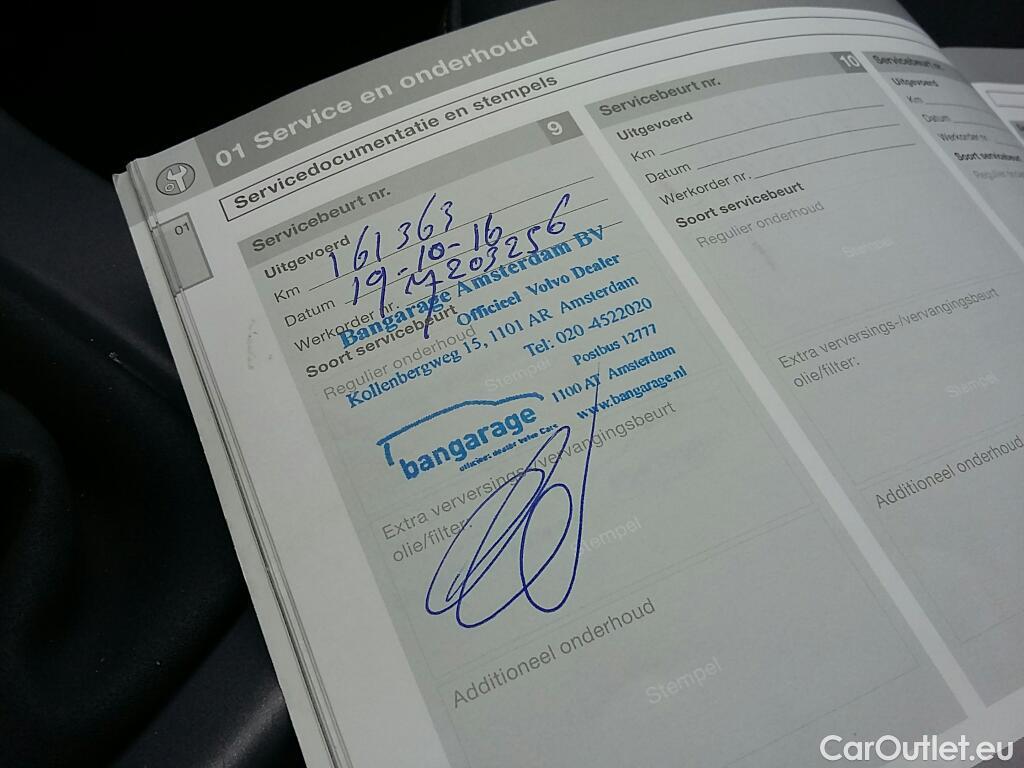 01 Service en onderhoud
Servicedocumentatie en stempels
01
Servicebeurt nr. 9
Uitgevoerd
Km 161363
Datum 19-10-16
Werkorder nr.
Soort servicebeurt
Regulier onderhoud
Stempel
Bangarage Amsterdam BV
Officieel Volvo Dealer
Kollenbergweg 15, 1101 AR Amsterdam
Tel: 020-4522020
Postbus 12777
1100 AT Amsterdam
www.bangarage.nl
bangarage
officieel dealer Volvo Cars
Extra verversings-/vervangingsbeurt
olie/filter:
Stempel
Additioneel onderhoud
Stempel
Servicebeurt nr. 10
Uitgevoerd
Km
Datum
Werkorder nr.
Soort servicebeurt
Regulier onderhoud
Stempel
Extra verversings-/vervangingsbeurt
olie/filter:
Stempel
Additioneel onderhoud
Servicebeurt nr.
Uitgevoerd
Km
Datum
Werkorder nr.
Soort servicebeurt
CarOutlet.eu